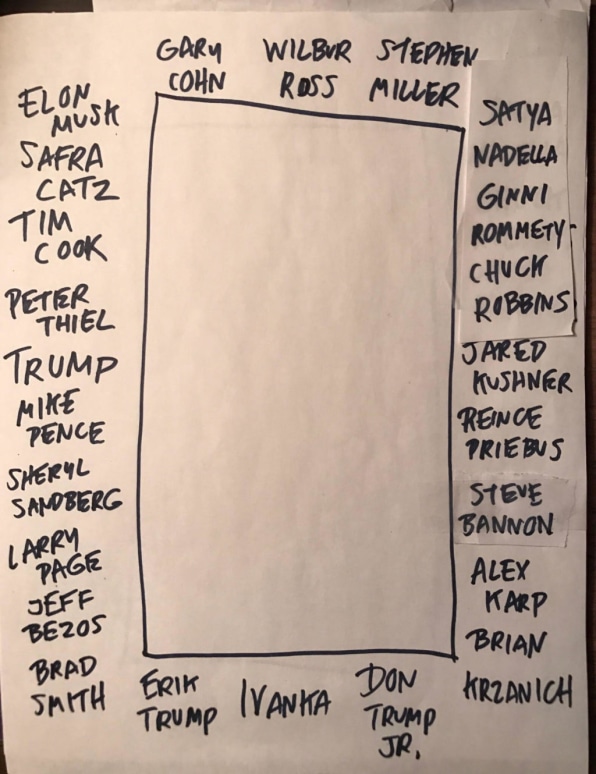 GARY
COHN
WILBUR
ROSS
STEPHEN
MILLER
ELON
MUSK
SAFRA
CATZ
TIM
COOK
PETER
THIEL
TRUMP
MIKE
PENCE
SHERYL
SANDBERG
LARRY
PAGE
JEFF
BEZOS
BRAD
SMITH
SATYA
NADELLA
GINNI
ROMMETY
CHUCK
ROBBINS
JARED
KUSHNER
REINCE
PRIEBUS
STEVE
BANNON
ALEX
KARP
BRIAN
KRZANICH
ERIK
TRUMP
IVANKA
DON
TRUMP
JR.